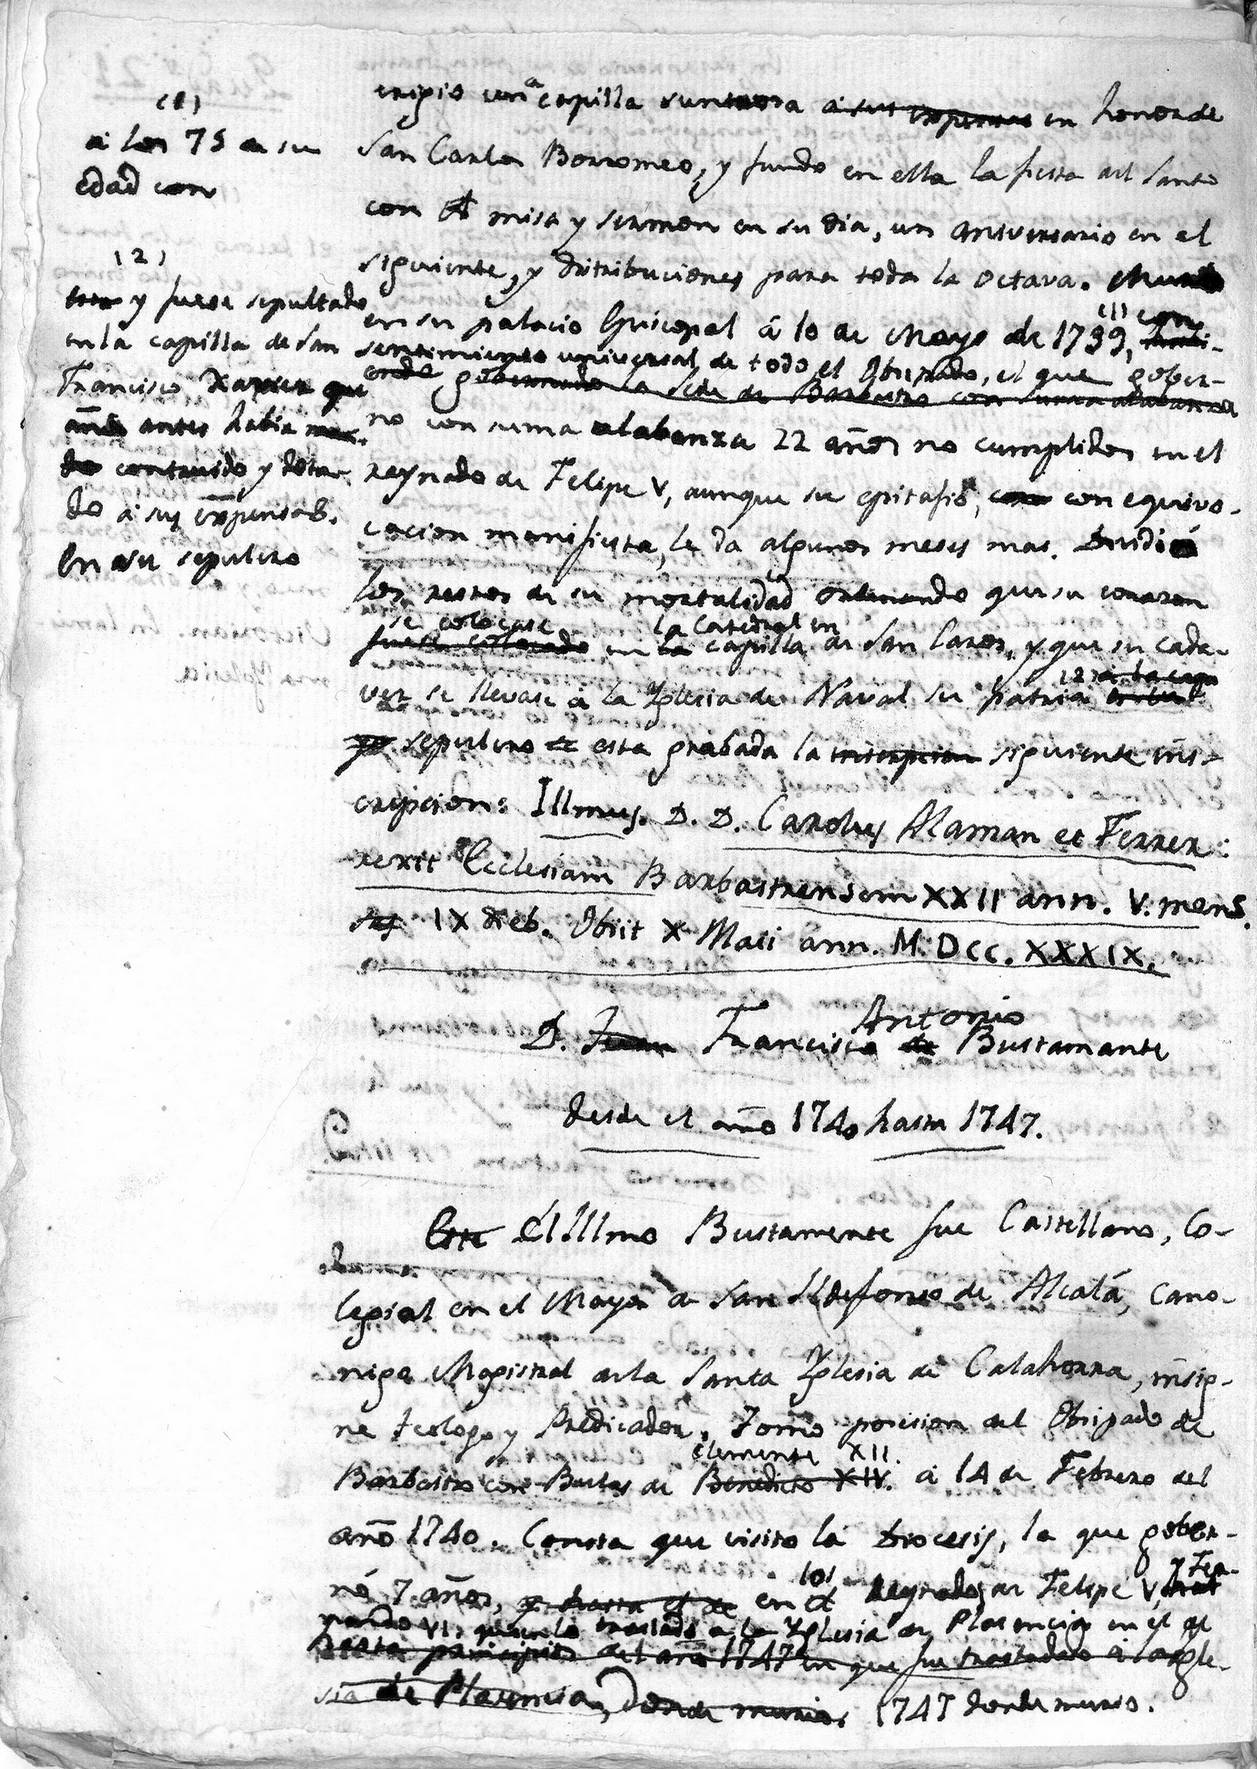 (1)
a los 75 de su
edad con
(2)
y fuese sepultado
en la capilla de San
Francisco Xavier que
años antes habia
construido y dota-
do à sus expensas.
En su sepulcro
erigio una capilla suntuosa a sus expensas en honor de
San Carlos Borromeo, y fundo en ella la fiesta del Santo
con misa y sermon en su dia, un aniversario en el
siguiente, y distribuciones para toda la octava. Murió
en su palacio Episcopal à 10 de Mayo de 1739, (1) con
sentimiento universal de todo el Obispado, el que gober-
gobernado la Sede de Barbastro con suma alabanza
nó con suma alabanza 22 años no cumplidos en el
reynado de Felipe V, aunque su epitafio, con equivo-
cacion manifiesta, le da algunos meses mas. Dividió
los restos de su mortalidad ordenando que su corazon
se colocase la Catedral en
fuese colocado en la capilla de San Carlos, y que su cada-
ver se llevase à la Yglesia de Naval su patria (2)
sepulcro esta grabada la inscripcion siguiente ins-
cripcion: Illmus. D. D. Carolus Alaman et Ferrer:
rexit Ecclesiam Barbastrensem XXII ann. V. mens.
IX dieb. Obiit X Maii ann. M.DCC.XXXIX.
Antonio
D. Juan Francisco de Bustamante
desde el año 1740 hasta 1747.
Este El Illmo Bustamente fue Castellano, Co-
legial en el Mayor de San Ildefonso de Alcalá, Cano-
nigo Magistral de la Santa Yglesia de Calahorra, insig-
ne teologo y Predicador. Tomó posesion del Obispado de
Clemente XII.
Barbastro con Bulas de Benedicto XIV. à 14 de Febrero del
año 1740. Consta que visito la Diocesis, la que gober-
los y Fer-
nó 7 años, y hasta el de en el Reynados de Felipe V,
nando VI, quien lo trasladó a la Yglesia de Plasencia en el de
hasta principios del año 1747 en que fue trasladado à la Ygle-
sia de Plasencia, donde murio. 1747 donde murio.